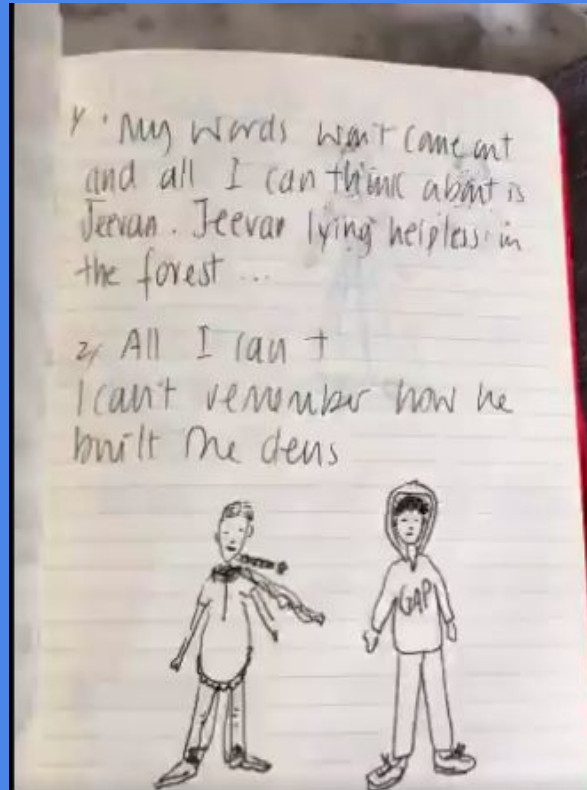 1/ • My words won't come out
and all I can think about is
Jeevan. Jeevan lying helpless in
the forest ...
2/ All I can t
I can't remember how he
built the dens
GAP